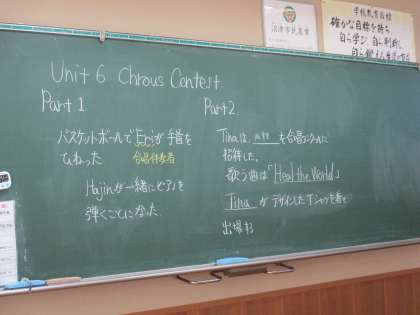 学校教育目標
確かな目標を持ち
自ら学び、自ら判断し
沼津市民憲章
Unit 6 Chrous Contest.
Part 1
バスケットボールでEriが手首を
ひねった 合唱伴奏者
Hajinが一緒にピアノを
弾くことになった
Part 2
Tinaは、を合唱コンクールに
招待した。
歌う曲は「Heal the World」
Tina がデザインしたTシャツを着て
出場する